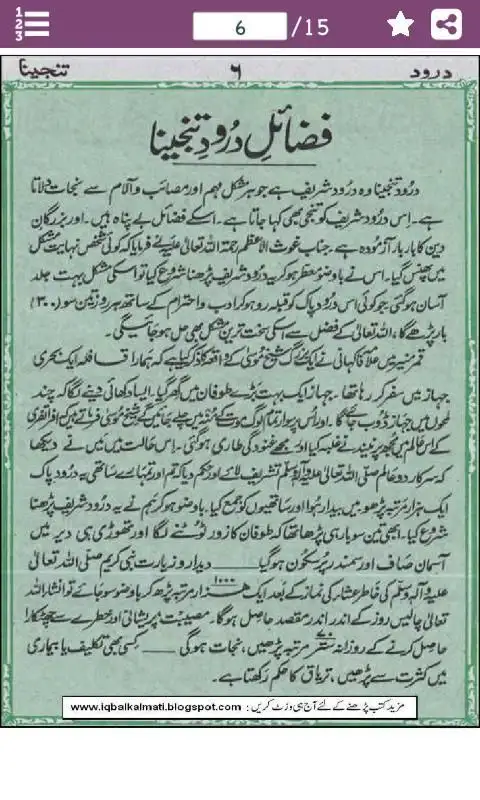 6 /15
درود ۶ تنجینا
فضائلِ درُودِ تنجینا
درُود تنجینا وہ درُود شریف ہے جو ہر مشکل مہم اور مصائب و آلام سے نجات دلاتا
ہے۔ اِس درُود شریف کو تنجی بھی کہا جاتا ہے۔ اسکے فضائل بے پناہ ہیں۔ اور بزرگان
دین کا بار بار آزمودہ ہے۔ جناب غوث الاعظم رحمۃ اللہ تعالیٰ علیہ نے فرمایا کہ کوئی شخص نہایت مشکل
میں پھنس گیا۔ اس نے باوضو معطر ہو کر یہ درود شریف پڑھنا شروع کیا تو اسکی مشکل بہت جلد
آسان ہو گئی، جو کوئی اس درُود پاک کو قبلہ رو ہو کر ادب و احترام کے ساتھ ہر روز تین سو (۳۰۰)
بار پڑھے گا، اللہ تعالیٰ کے فضل سے اسکی سخت ترین مشکل بھی حل ہو جائیگی۔
قمر منیر میں علامہ فاکہانی نے ایک بزرگ شیخ موسیٰ کے واقعہ کا ذکر کیا ہے کہ ہمارا قافلہ ایک بحری
جہاز میں سفر کر رہا تھا۔ جہاز ایک بہت بڑے طوفان میں گھر گیا۔ ایسا دکھائی دینے لگا کہ چند
لمحوں میں جہاز ڈوب جائے گا۔ اور اُس پر سوار تمام لوگ موت کے منہ میں چلے جائیں گے شیخ موسیٰ فرماتے ہیں افراتفری
کے اس عالم میں مجھ پر نیند نے غلبہ کیا اور مجھے غنودگی طاری ہو گئی۔ اِس حالت میں میں نے دیکھا
کہ سرکار دو عالم صلی اللہ تعالیٰ علیہ وآلہٖ وسلم تشریف لائے اور حکم دیا کہ تم اور تمہارے ساتھی یہ درُود پاک
ایک ہزار مرتبہ پڑھو میں بیدار ہوا اور ساتھیوں کو جمع کیا۔ باوضو ہو کر ہم نے یہ درود شریف پڑھنا
شروع کیا۔ ابھی تین سو بار ہی پڑھا تھا کہ طوفان کا زور ٹوٹنے لگا اور تھوڑی ہی دیر میں
آسمان صاف اور سمندر پُرسکون ہو گیا ــــــــ دیدار و زیارت نبی کریم صلی اللہ تعالیٰ
علیہ وآلہٖ وسلم کی خاطر عشاء کی نماز کے بعد ایک ہزار ۱۰۰۰ مرتبہ پڑھ کر باوضو سو جائے تو انشاء اللہ
تعالیٰ چالیس روز کے اندر اندر مقصد حاصل ہو گا۔ مصیبت، پریشانی اور خطرے سے چھٹکارا
حاصل کرنے کے روزانہ ستّر ۷۰ مرتبہ پڑھیں، نجات ہو گی ــــــ کسی بھی تکلیف یا بیماری
میں کثرت سے پڑھیں، تریاق کا حکم رکھتا ہے۔
مزید کتب پڑھنے کے لئے آج ہی وزٹ کریں : www.iqbalkalmati.blogspot.com